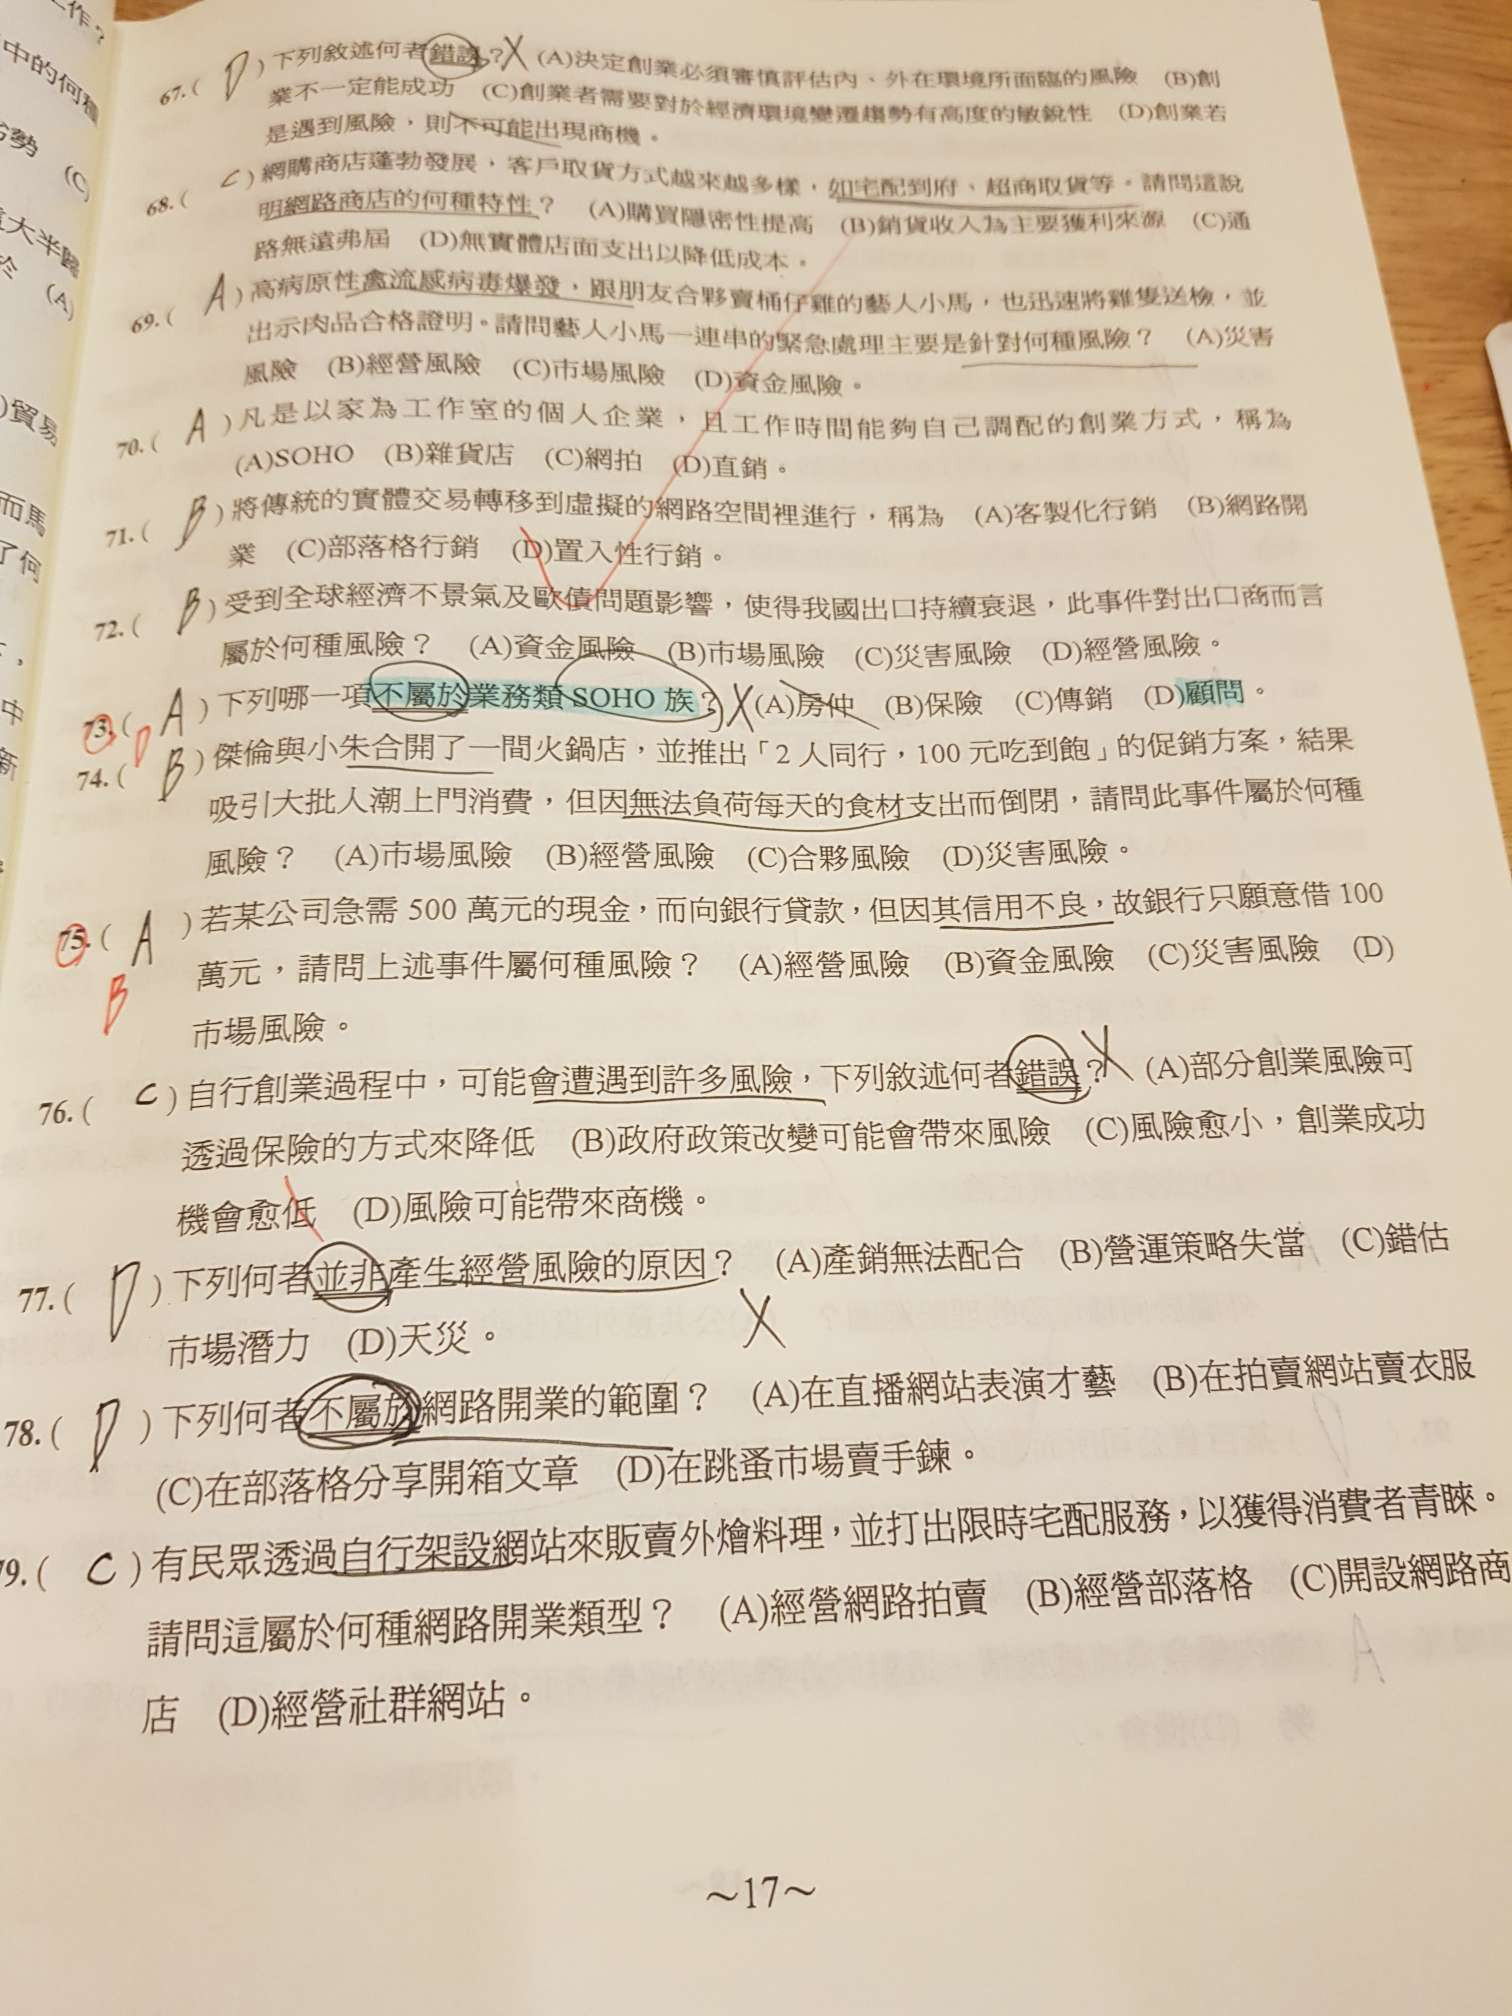 67.( D )下列敘述何者錯誤？X (A)決定創業必須審慎評估內、外在環境所面臨的風險 (B)創
業不一定能成功 (C)創業者需要對於經濟環境變遷趨勢有高度的敏銳性 (D)創業若
是遇到風險，則不可能出現商機。
68.( C )網購商店蓬勃發展，客戶取貨方式越來越多樣，如宅配到府、超商取貨等。請問這說
明網路商店的何種特性？ (A)購買隱密性提高 (B)銷貨收入為主要獲利來源 (C)通
路無遠弗屆 (D)無實體店面支出以降低成本。
69.( A )高病原性禽流感病毒爆發，跟朋友合夥賣桶仔雞的藝人小馬，也迅速將雞隻送檢，並
出示肉品合格證明。請問藝人小馬一連串的緊急處理主要是針對何種風險？ (A)災害
風險 (B)經營風險 (C)市場風險 (D)資金風險。
70.( A )凡是以家為工作室的個人企業，且工作時間能夠自己調配的創業方式，稱為
(A)SOHO (B)雜貨店 (C)網拍 (D)直銷。
71.( B )將傳統的實體交易轉移到虛擬的網路空間裡進行，稱為 (A)客製化行銷 (B)網路開
業 (C)部落格行銷 (D)置入性行銷。
72.( B )受到全球經濟不景氣及歐債問題影響，使得我國出口持續衰退，此事件對出口商而言
屬於何種風險？ (A)資金風險 (B)市場風險 (C)災害風險 (D)經營風險。
73.( A )下列哪一項不屬於業務類SOHO族？X (A)房仲 (B)保險 (C)傳銷 (D)顧問。
D
74.( B )傑倫與小朱合開了一間火鍋店，並推出「2人同行，100元吃到飽」的促銷方案，結果
吸引大批人潮上門消費，但因無法負荷每天的食材支出而倒閉，請問此事件屬於何種
風險？ (A)市場風險 (B)經營風險 (C)合夥風險 (D)災害風險。
75.( A )若某公司急需500萬元的現金，而向銀行貸款，但因其信用不良，故銀行只願意借100
B
萬元，請問上述事件屬何種風險？ (A)經營風險 (B)資金風險 (C)災害風險 (D)
市場風險。
76.( C )自行創業過程中，可能會遭遇到許多風險，下列敘述何者錯誤？X (A)部分創業風險可
透過保險的方式來降低 (B)政府政策改變可能會帶來風險 (C)風險愈小，創業成功
機會愈低 (D)風險可能帶來商機。
77.( D )下列何者並非產生經營風險的原因？ (A)產銷無法配合 (B)營運策略失當 (C)錯估
市場潛力 (D)天災。 X
78.( D )下列何者不屬於網路開業的範圍？ (A)在直播網站表演才藝 (B)在拍賣網站賣衣服
(C)在部落格分享開箱文章 (D)在跳蚤市場賣手鍊。
79.( C )有民眾透過自行架設網站來販賣外燴料理，並打出限時宅配服務，以獲得消費者青睞。
請問這屬於何種網路開業類型？ (A)經營網路拍賣 (B)經營部落格 (C)開設網路商
店 (D)經營社群網站。
～17～